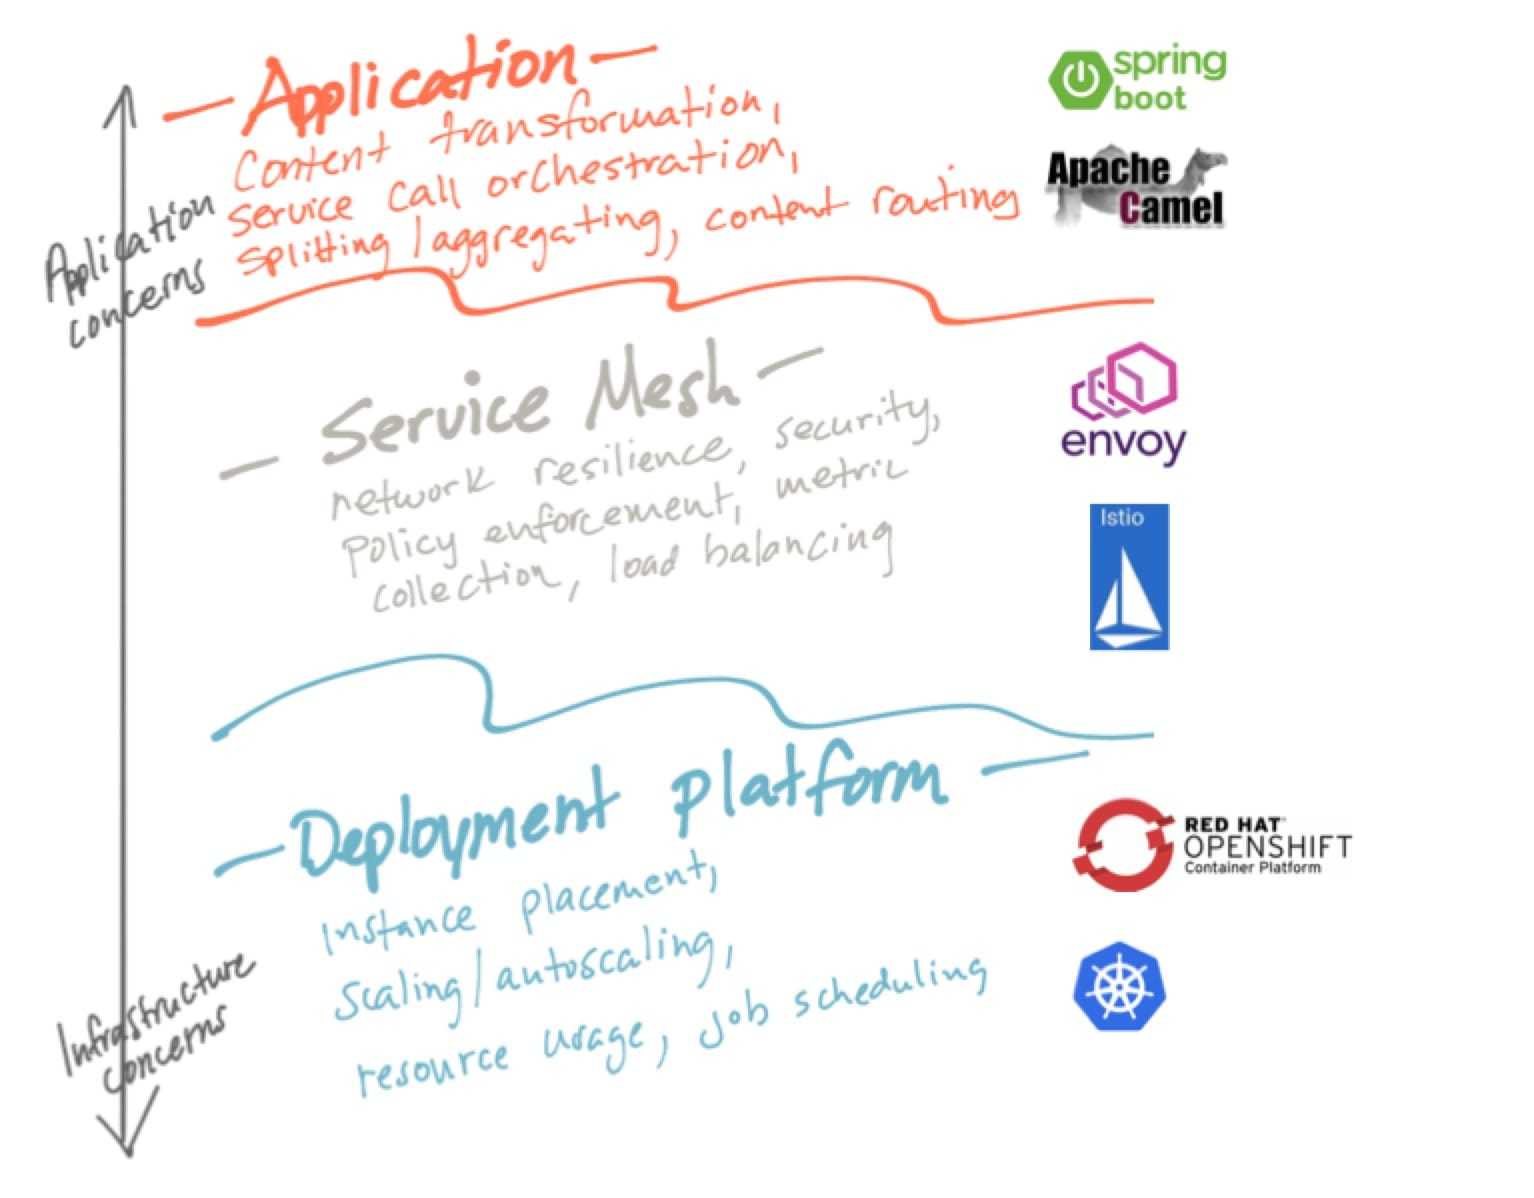 — Application —
Content transformation,
service call orchestration,
splitting/aggregating, content routing
spring
boot
Apache
Camel
Application
concerns
— Service Mesh —
network resilience, security,
policy enforcement, metric
collection, load balancing
envoy
Istio
— Deployment platform —
Instance placement,
scaling/autoscaling,
resource usage, job scheduling
RED HAT®
OPENSHIFT
Container Platform
Infrastructure
concerns